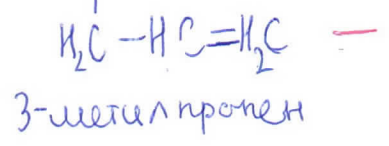 H₂C–HC=H₂C
3-метилпропен